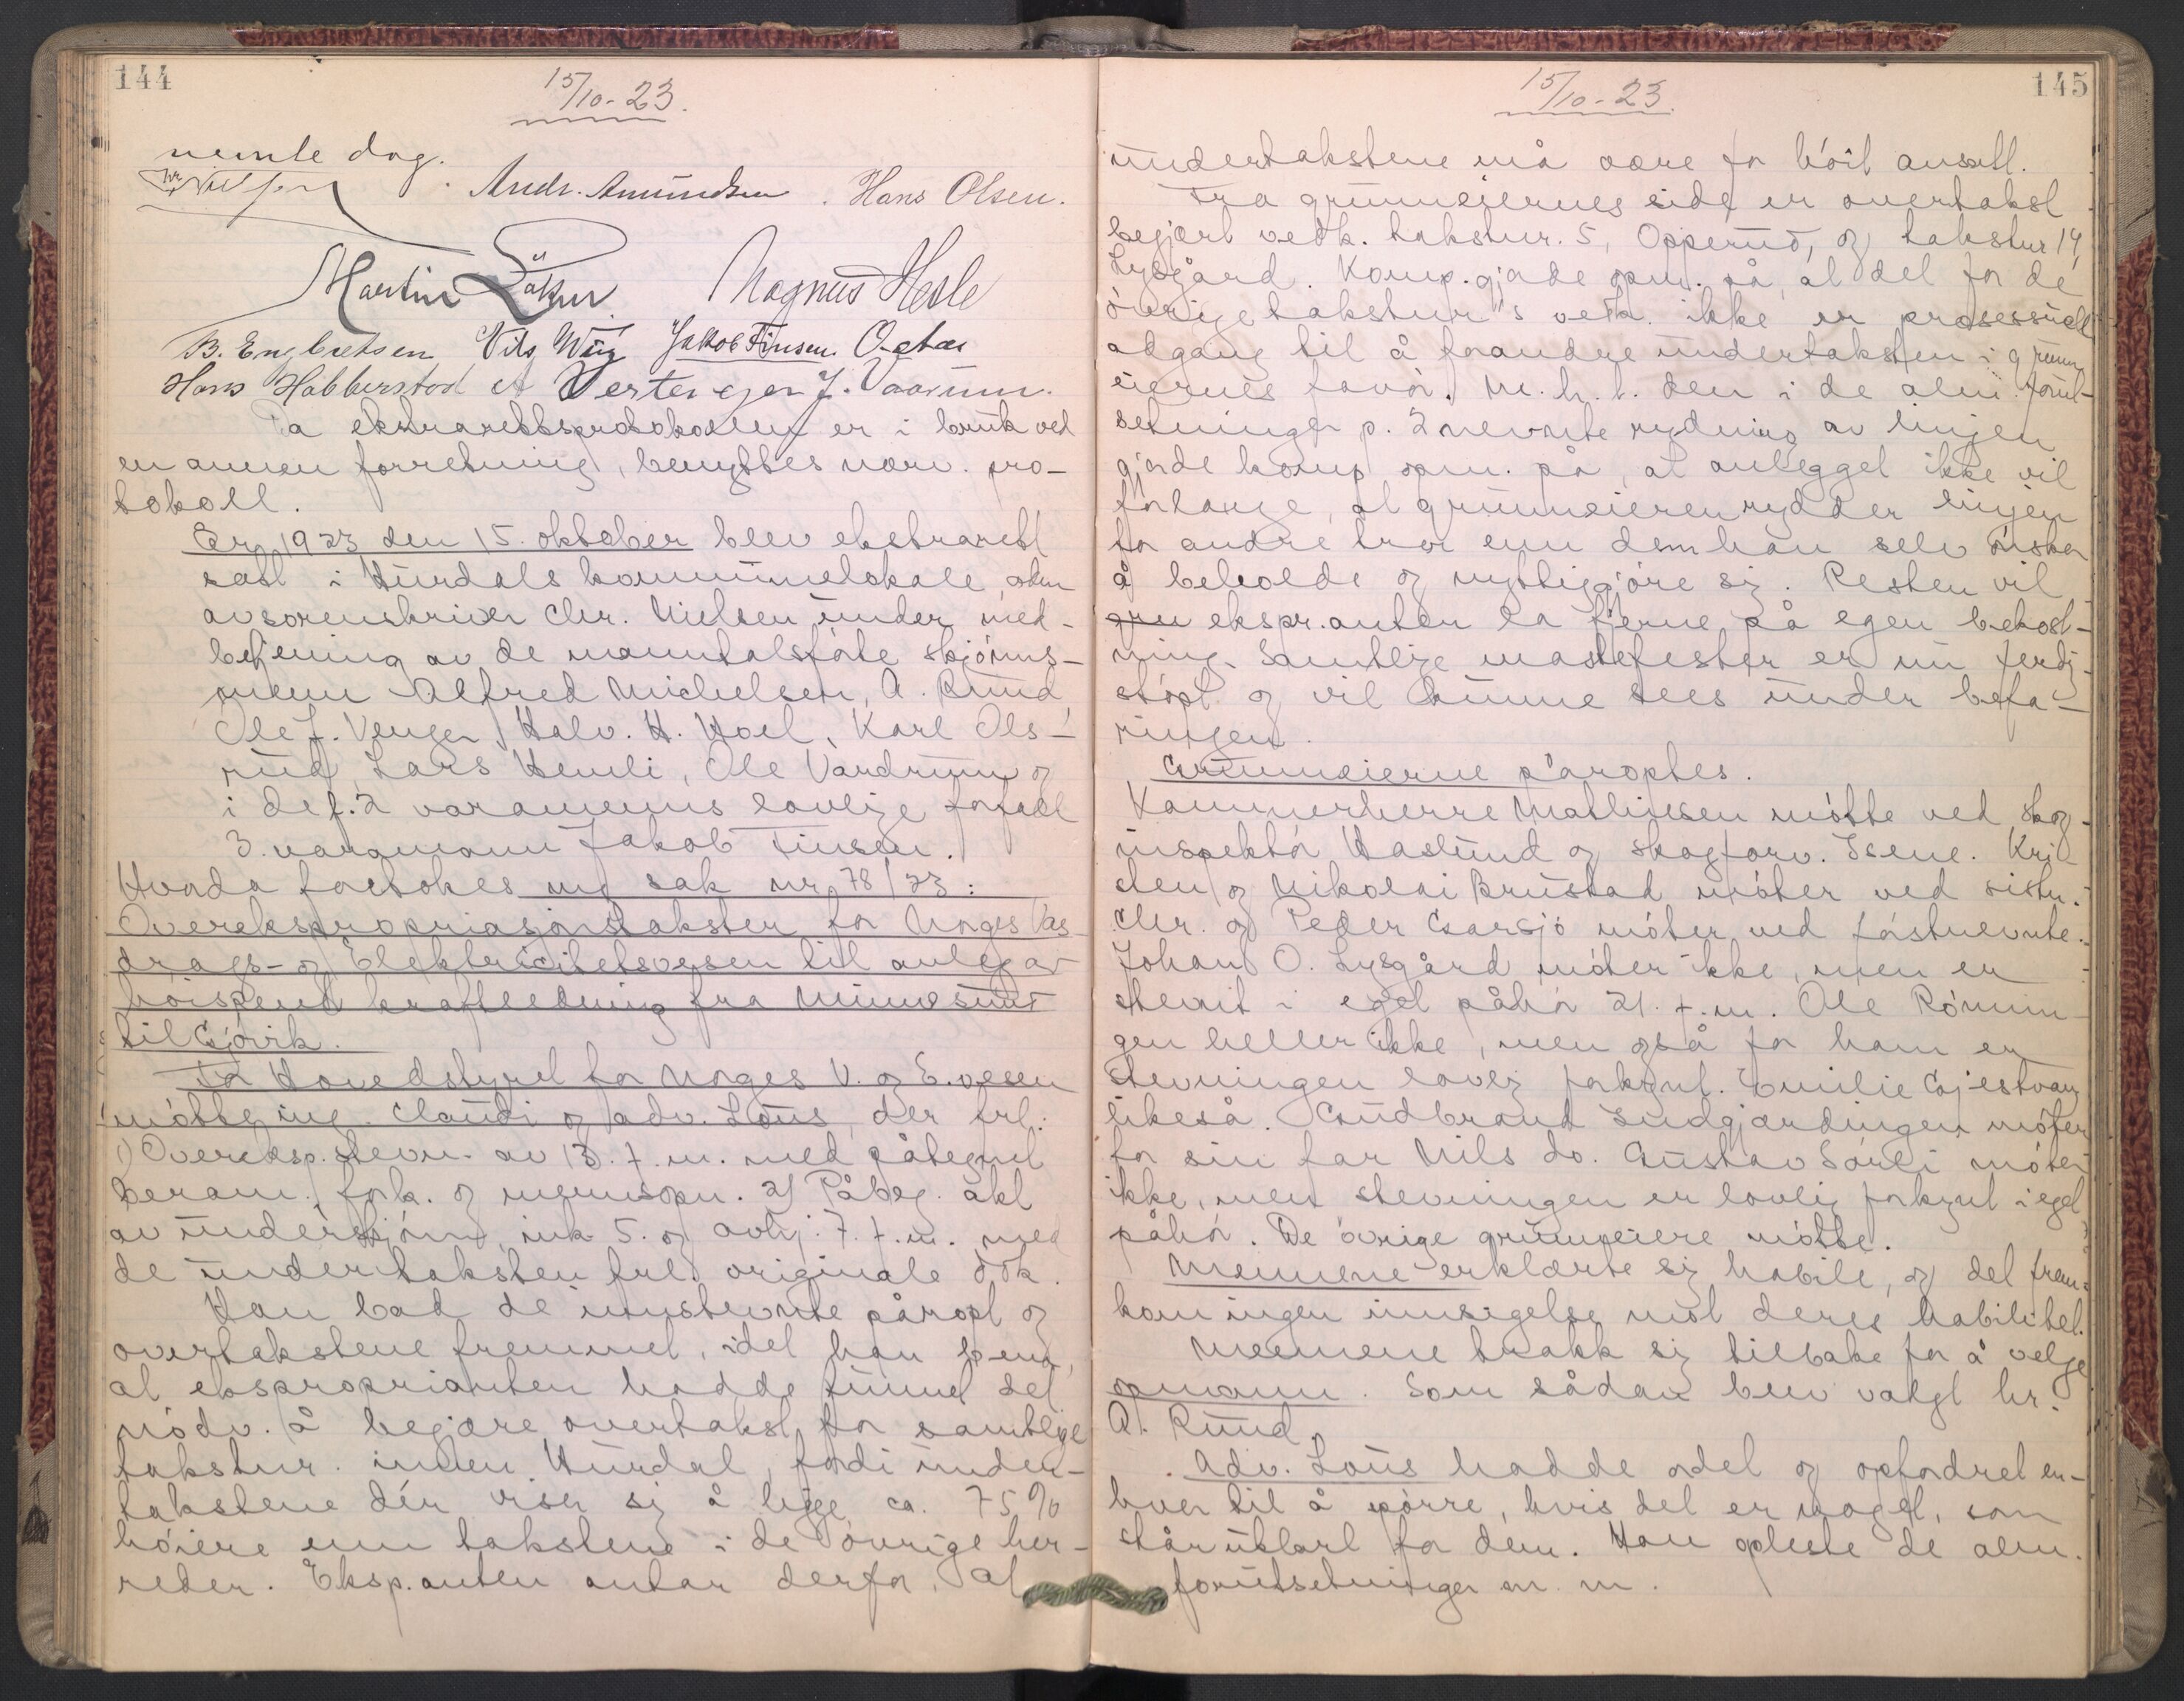 144
15/10-23.
nevnte dag.
Andr. Amundsen. Hans Olsen.
Martin Magnus Hesle
B. Engbretsen Nils Jakob Finsen.
Hans Habberstad J. Vaarum.
Da ekstrarettsprotokollen er i bruk ved
en annen forretning, benyttes nærv. pro-
tokoll.
År 1923 den 15. oktober blev ekstrarett
satt i Hurdals kommunelokale
av sorenskriver Chr. Nielsen under med-
betjening av de manntalsførte skjønns-
menn Alfred Michelsen, A. Ruud,
Ole J. Venger, Halv. H. Hoel, Karl Ols-
rud, Lars Hemli, Ole Vardrum og
i det f. 2 varamenns lovlige forfall
3. varamann Jakob Finsen.
Hvorda foretokes sak nr. 78/23:
Overekspropriasjonstakster for Norges Vas-
drags- og Elektricitetsvesen til anlegg av
høispent kraftledning fra Minnesund
til Gjøvik.
For Hovedstyret for Norges V. og E.vesen
møtte ing. Claudi og adv. Lous, der frl.:
1) Overeksp. stevn. av 13. f. m. med påtegnet
beram., fork. og mennsopn. 2) Påbeg. akt
av underskjønn, ink. 5. og avhj. 7. f. m. med
de undertaksten frl. originale dok.
Han bad de innstevnte påropt og
overtakstene fremmet, idet han bem.,
at eksproprianten hadde funnet det
nødv. å begjære overtakst for samtlige
takstnr. innen Hurdal, fordi under-
takstene dér viser sig å ligge ca. 75%
høiere enn takstene i de øvrige her-
reder. Eksp.anten antar derfor, at
145
15/10-23.
undertakstene må være for høit ansatt.
Fra grunneiernes side er overtakst
begjært vedk. takstnr. 5, Opperud, og takstnr 14,
Lysgård. Komp. gjorde opm. på, at det for de
øvrige takstnr's vedk. ikke er prosessuell
adgang til å forandre undertaksten i grunn-
eiernes favør. M. h. t. den i de alm. forut-
setninger p. 2 nevnte rydning av linjen
gjorde komp opm. på, at anlegget ikke vil
forlange, at grunneieren rydder linjen
for andre trær enn dem han selv ønsker
å beholde og nyttiggjøre sig. Resten vil
ekspr.anten la fjerne på egen bekost-
ning. Samtlige mastefester er nu ferdig
støpt og vil kunne sees under befa-
ringen.
Grunneierne påroptes.
Kammerherre Mathiesen møtte ved skog-
inspektør Haslund og skogforv. Isene. Kri-
sten og Nikolai Brustad møter ved sistn.
Chr. og Peder Garsjø møter ved førstnevnte.
Johan O. Lysgård møter ikke, men er
stevnt i eget påhør 21. f. m. Ole Rønnin-
gen heller ikke, men også for ham er
stevningen lovlig forkynt. Emilie Gjestvang
likeså. Gudbrand Sudgjærdingen møter
for sin far Nils do. Gustav Sørli møter
ikke, men stevningen er lovlig forkynt i eget
påhør. De øvrige grunneiere møtte.
Mennene erklærte sig habile, og det frem-
kom ingen innsigelse mot deres habilitet.
Mennene trakk sig tilbake for å velge
opmann. Som sådan blev valgt hr.
A. Ruud.
Adv. Lous hadde ordet og opfordret en-
hver til å spørre, hvis det er noget, som
står uklart for dem. Han opleste de alm.
forutsetninger m. m.